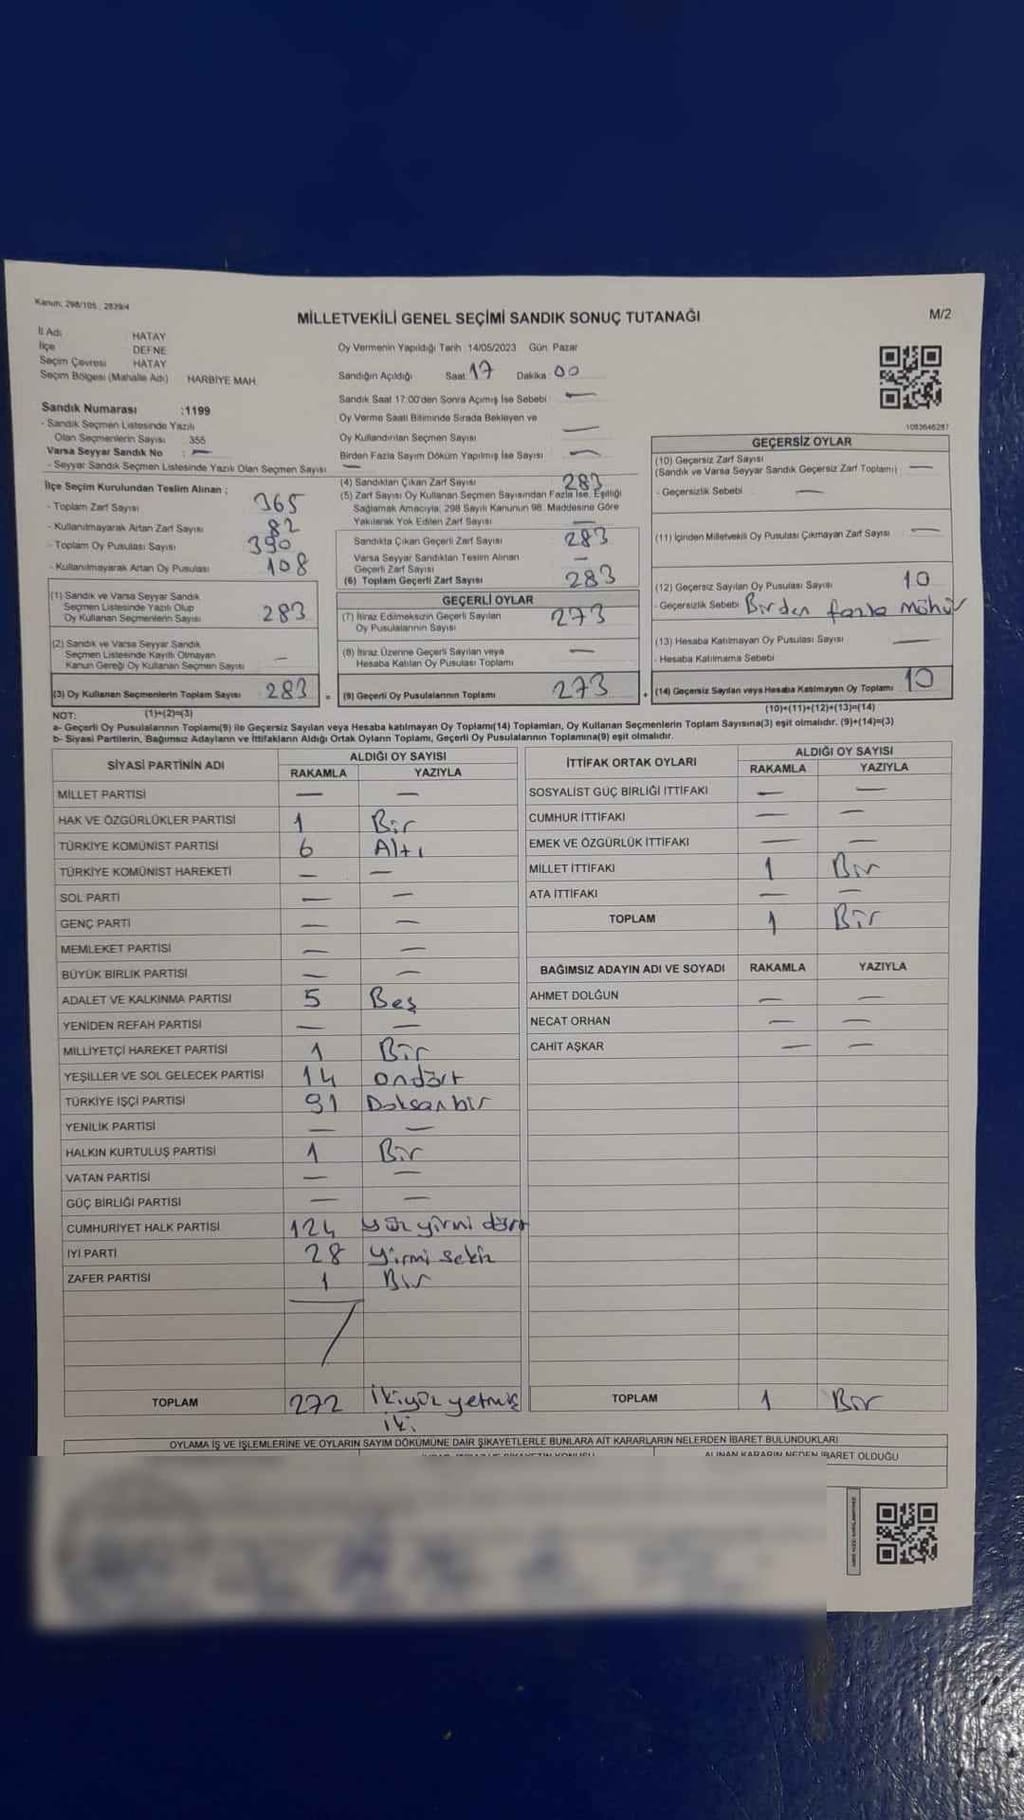 Kanun: 298/105 ; 2839/4
MİLLETVEKİLİ GENEL SEÇİMİ SANDIK SONUÇ TUTANAĞI
M/2
İl Adı HATAY
İlçe DEFNE
Seçim Çevresi HATAY
Seçim Bölgesi (Mahalle Adı) HARBİYE MAH.
Sandık Numarası :1199
- Sandık Seçmen Listesinde Yazılı
Olan Seçmenlerin Sayısı 355
Varsa Seyyar Sandık No : —
- Seyyar Sandık Seçmen Listesinde Yazılı Olan Seçmen Sayısı —
İlçe Seçim Kurulundan Teslim Alınan ;
- Toplam Zarf Sayısı 365
- Kullanılmayarak Artan Zarf Sayısı 82
- Toplam Oy Pusulası Sayısı 390
- Kullanılmayarak Artan Oy Pusulası 108
(1) Sandık ve Varsa Seyyar Sandık
Seçmen Listesinde Yazılı Olup
Oy Kullanan Seçmenlerin Sayısı 283
(2) Sandık ve Varsa Seyyar Sandık
Seçmen Listesinde Kayıtlı Olmayan
Kanun Gereği Oy Kullanan Seçmen Sayısı —
(3) Oy Kullanan Seçmenlerin Toplam Sayısı 283 =
(1)+(2)=(3)
Oy Vermenin Yapıldığı Tarih 14/05/2023 Gün Pazar
Sandığın Açıldığı Saat 17 Dakika 00
Sandık Saat 17:00'den Sonra Açımış İse Sebebi —
Oy Verme Saati Bitiminde Sırada Bekleyen ve
Oy Kullandırılan Seçmen Sayısı —
Birden Fazla Sayım Döküm Yapılmış İse Sayısı —
(4) Sandıktan Çıkan Zarf Sayısı 283
(5) Zarf Sayısı Oy Kullanan Seçmen Sayısından Fazla İse, Eşitliği
Sağlamak Amacıyla, 298 Sayılı Kanunun 98. Maddesine Göre
Yakılarak Yok Edilen Zarf Sayısı —
Sandıkta Çıkan Geçerli Zarf Sayısı 283
Varsa Seyyar Sandıktan Teslim Alınan
Geçerli Zarf Sayısı —
(6) Toplam Geçerli Zarf Sayısı 283
GEÇERLİ OYLAR
(7) İtiraz Edilmeksizin Geçerli Sayılan
Oy Pusulalarının Sayısı 273
(8) İtiraz Üzerine Geçerli Sayılan veya
Hesaba Katılan Oy Pusulası Toplamı —
(9) Geçerli Oy Pusulalarının Toplamı 273 +
1083646287
GEÇERSİZ OYLAR
(10) Geçersiz Zarf Sayısı
(Sandık ve Varsa Seyyar Sandık Geçersiz Zarf Toplamı) —
- Geçersizlik Sebebi —
(11) İçinden Milletvekili Oy Pusulası Çıkmayan Zarf Sayısı —
(12) Geçersiz Sayılan Oy Pusulası Sayısı 10
- Geçersizlik Sebebi Birden fazla mühür
(13) Hesaba Katılmayan Oy Pusulası Sayısı —
- Hesaba Katılmama Sebebi
(14) Geçersiz Sayılan veya Hesaba Katılmayan Oy Toplamı 10
(10)+(11)+(12)+(13)=(14)
NOT:
a- Geçerli Oy Pusulalarının Toplamı(9) ile Geçersiz Sayılan veya Hesaba katılmayan Oy Toplamı(14) Toplamları, Oy Kullanan Seçmenlerin Toplam Sayısına(3) eşit olmalıdır. (9)+(14)=(3)
b- Siyasi Partilerin, Bağımsız Adayların ve İttifakların Aldığı Ortak Oyların Toplamı, Geçerli Oy Pusulalarının Toplamına(9) eşit olmalıdır.
SİYASİ PARTİNİN ADI ALDIĞI OY SAYISI
RAKAMLA YAZIYLA
MİLLET PARTİSİ — —
HAK VE ÖZGÜRLÜKLER PARTİSİ 1 Bir
TÜRKİYE KOMÜNİST PARTİSİ 6 Altı
TÜRKİYE KOMÜNİST HAREKETİ — —
SOL PARTİ — —
GENÇ PARTİ — —
MEMLEKET PARTİSİ — —
BÜYÜK BİRLİK PARTİSİ — —
ADALET VE KALKINMA PARTİSİ 5 Beş
YENİDEN REFAH PARTİSİ — —
MİLLİYETÇİ HAREKET PARTİSİ 1 Bir
YEŞİLLER VE SOL GELECEK PARTİSİ 14 ondört
TÜRKİYE İŞÇİ PARTİSİ 91 Doksan bir
YENİLİK PARTİSİ — —
HALKIN KURTULUŞ PARTİSİ 1 Bir
VATAN PARTİSİ — —
GÜÇ BİRLİĞİ PARTİSİ — —
CUMHURİYET HALK PARTİSİ 124 yüz yirmi dört
İYİ PARTİ 28 yirmi sekiz
ZAFER PARTİSİ 1 Bir
TOPLAM 272 İkiyüz yetmiş
iki
İTTİFAK ORTAK OYLARI ALDIĞI OY SAYISI
RAKAMLA YAZIYLA
SOSYALİST GÜÇ BİRLİĞİ İTTİFAKI — —
CUMHUR İTTİFAKI — —
EMEK VE ÖZGÜRLÜK İTTİFAKI — —
MİLLET İTTİFAKI 1 Bir
ATA İTTİFAKI — —
TOPLAM 1 Bir
BAĞIMSIZ ADAYIN ADI VE SOYADI RAKAMLA YAZIYLA
AHMET DOLĞUN — —
NECAT ORHAN — —
CAHİT AŞKAR — —
TOPLAM 1 Bir
OYLAMA İŞ VE İŞLEMLERİNE VE OYLARIN SAYIM DÖKÜMÜNE DAİR ŞİKAYETLERLE BUNLARA AİT KARARLARIN NELERDEN İBARET BULUNDUKLARI
ALINAN KARARIN NEDEN İBARET OLDUĞU